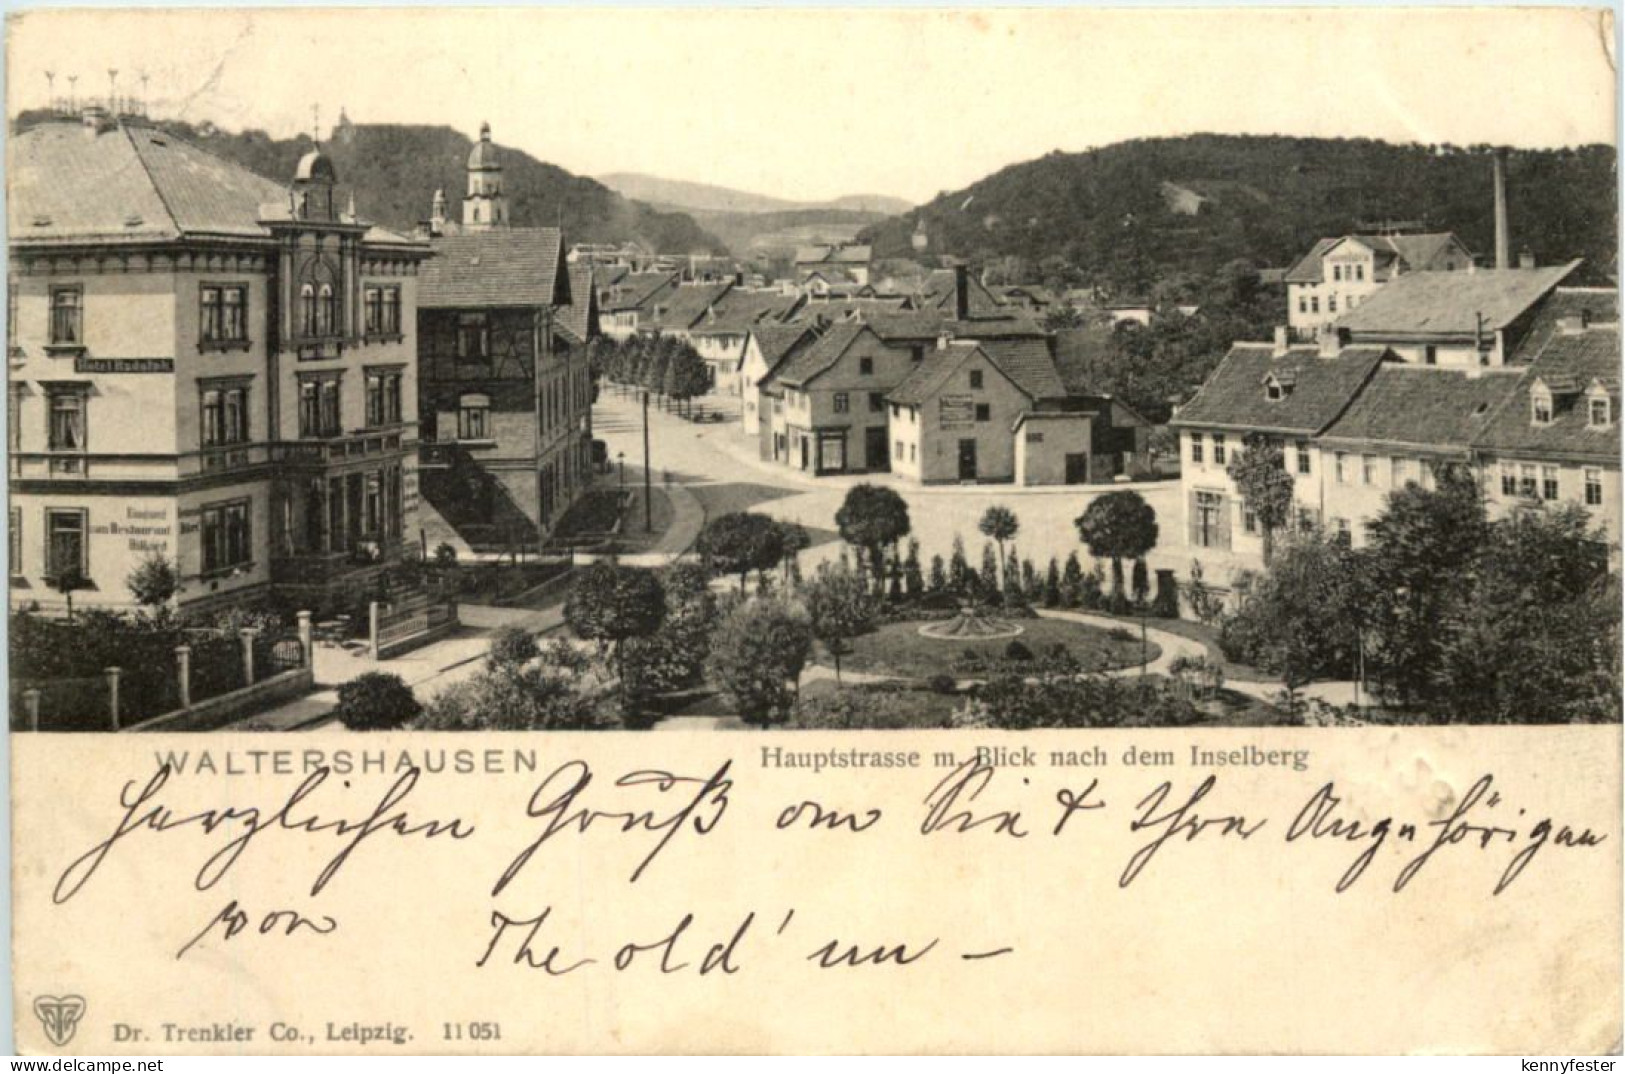 Hotel Rudolph
Eingang
zum Restaurant
Billard
WALTERSHAUSEN
Hauptstrasse m. Blick nach dem Inselberg
Herzlichen Gruß an Sie & Ihre Angehörigen
von The old 'un –
Dr. Trenkler Co., Leipzig. 11 051
www.delcampe.net
kennyfester